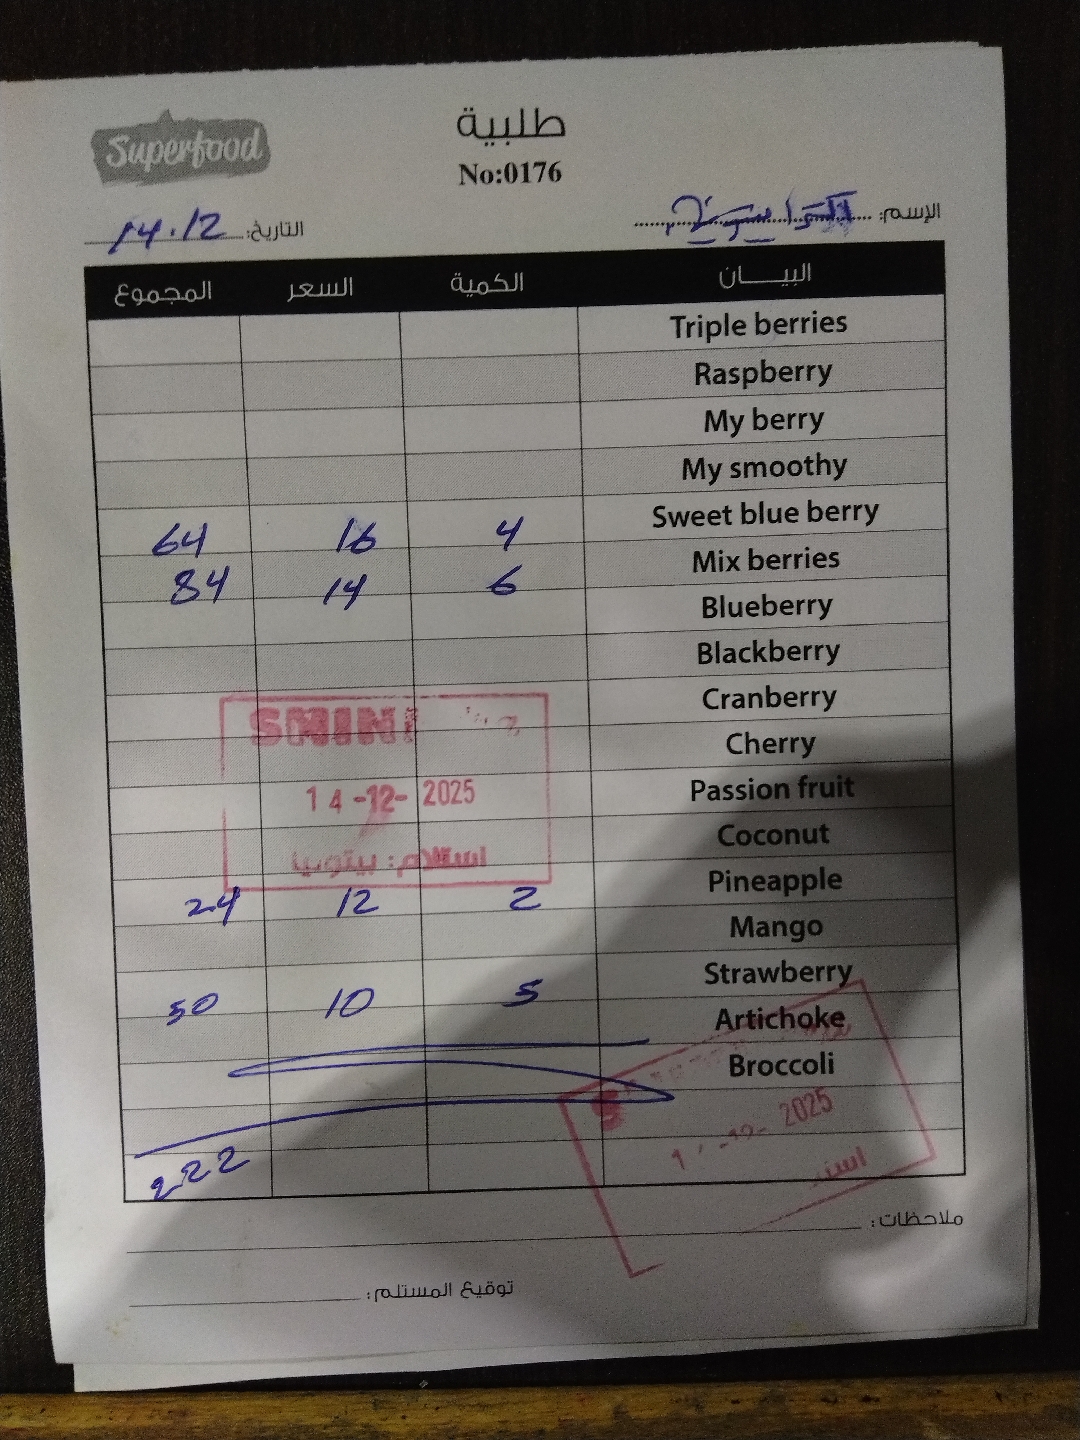 Superfood
طلبية
No:0176
الإسم:
التاريخ: 14.12
البيـــان الكمية السعر المجموع
Triple berries
Raspberry
My berry
My smoothy
Sweet blue berry 4 16 64
Mix berries 6 14 84
Blueberry
Blackberry
Cranberry
Cherry
Passion fruit
Coconut
Pineapple 2 12 24
Mango
Strawberry 5 10 50
Artichoke
Broccoli
222
14-12-2025
استلام:
2025
ملاحظات:
توقيع المستلم: